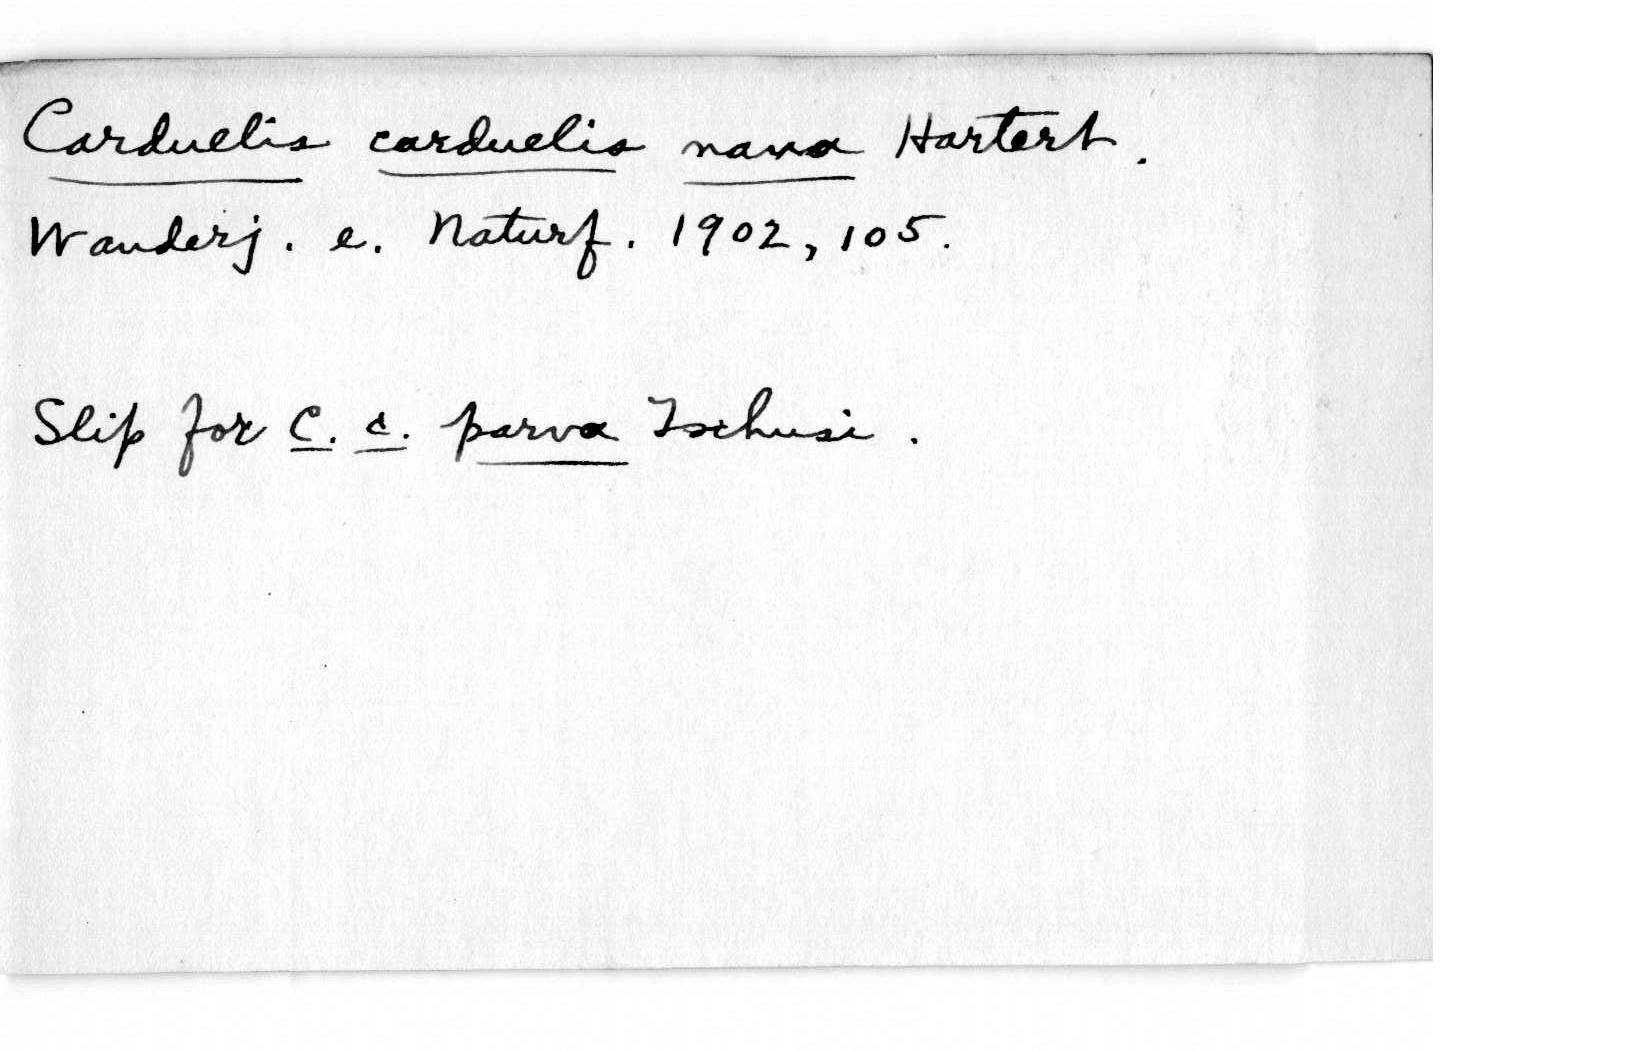 Carduelis carduelis nana Hartert.
Wanderj. e. Naturf. 1902, 105.
Slip for C. c. parva Tschusi.